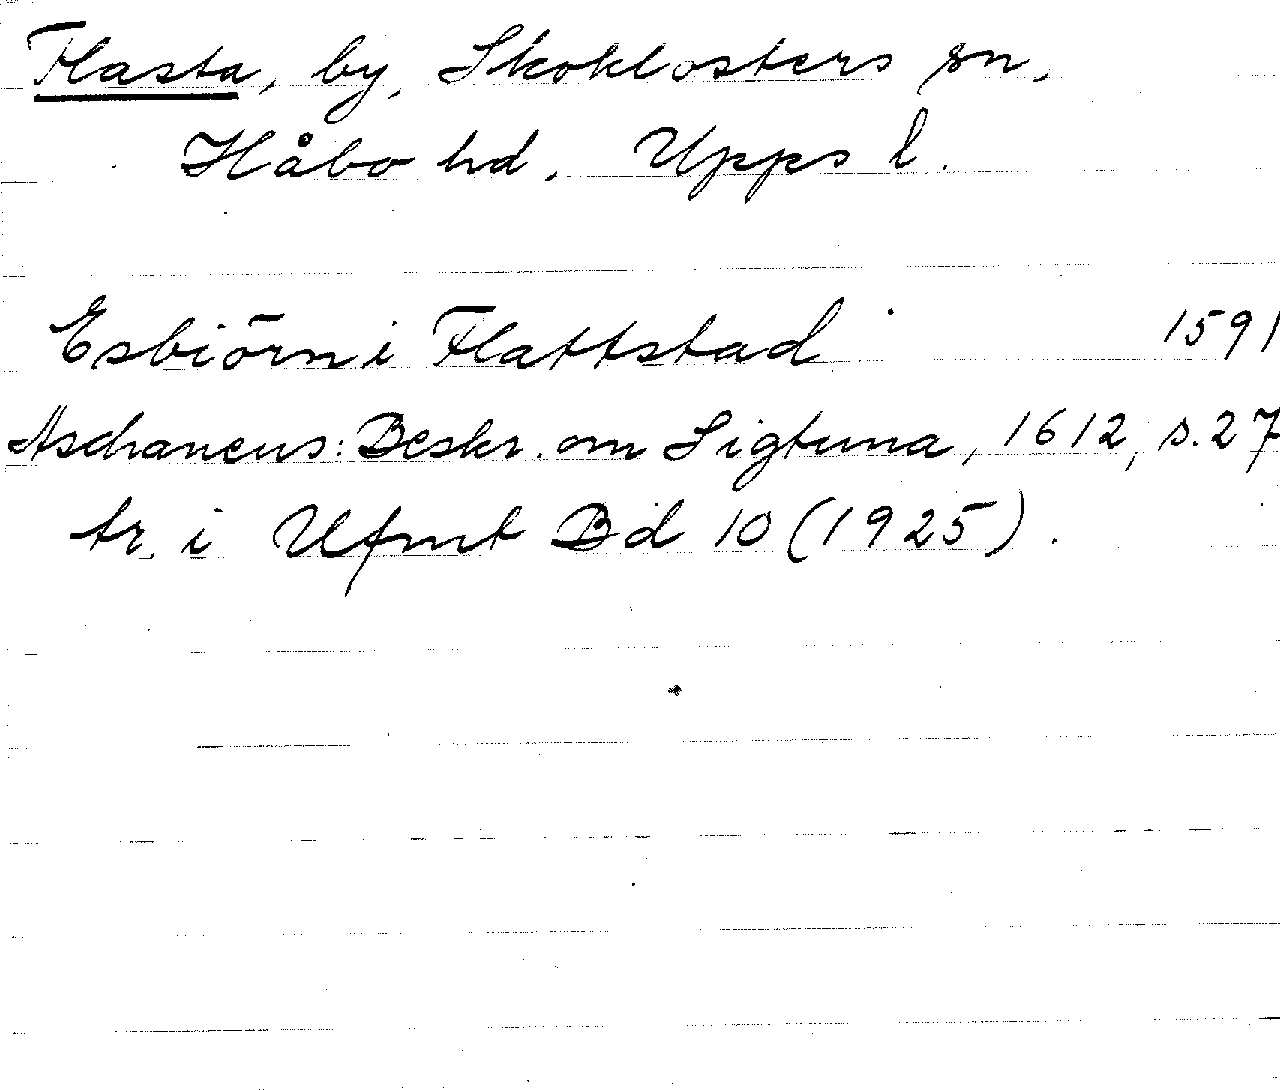 Flasta, by, Skoklosters sn,
Håbo hd. Upps l.
Esbiörn i Flattstad 1591
Aschaneus: Beskr. om Sigtuna, 1612, s. 27
tr. i Ufmt Bd 10 (1925).